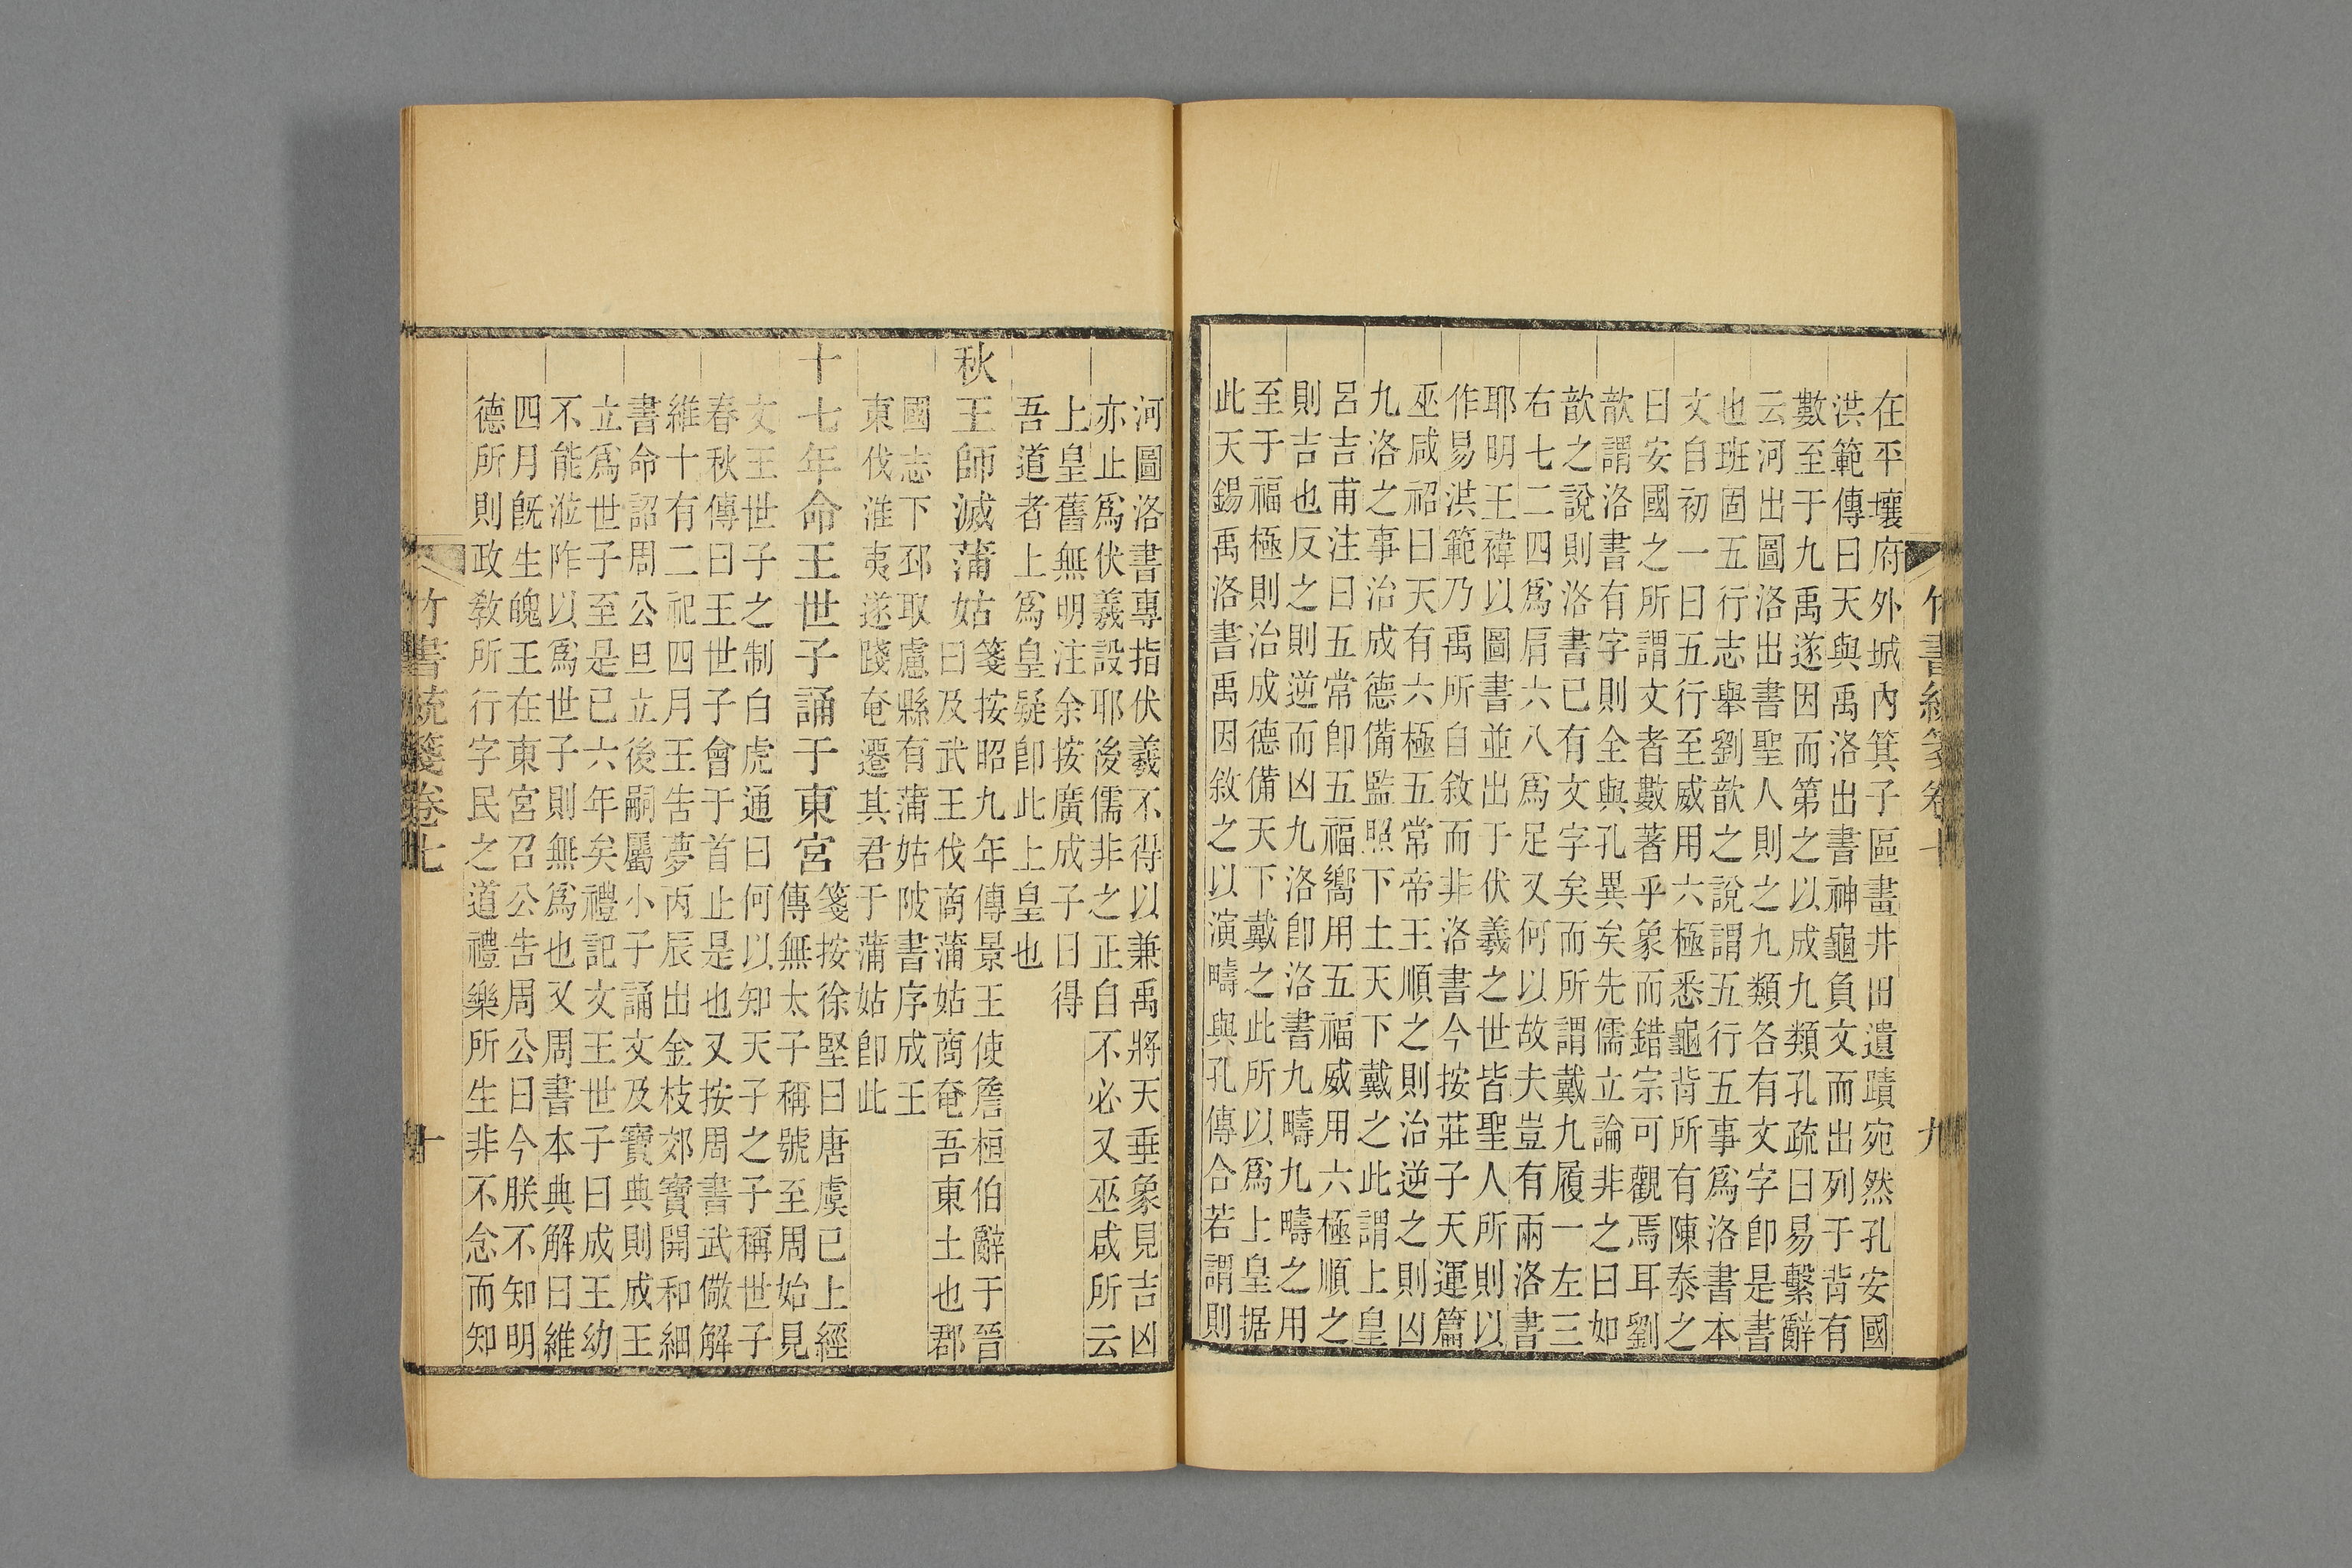 在平壤府外城內箕子區畫井田遺蹟宛然孔安國
洪範傳曰天與禹洛出書神龜負文而出列于背有
數至于九禹遂因而第之以成九類孔疏曰易繫辭
云河出圖洛出書聖人則之九類各有文字卽是書
也班固五行志舉劉歆之說謂五行五事爲洛書本
文自初一曰五行至威用六極悉龜背所有陳泰之
曰安國之所謂文者數著乎象而錯宗可觀焉耳劉
歆謂洛書有字則全與孔異矣先儒立論非之曰如
歆之說則洛書已有文字矣而所謂戴九履一左三
右七二四爲肩六八爲足又何以故夫豈有兩洛書
耶明王褘以圖書並出于伏羲之世皆聖人所則以
作易洪範乃禹所自敘而非洛書今按莊子天運篇
巫咸祒曰天有六極五常帝王順之則治逆之則凶
九洛之事治成德備監照下土天下戴之此謂上皇
呂吉甫注曰五常卽五福嚮用五福威用六極順之
則吉也反之則逆而凶九洛卽洛書九疇九疇之用
至于福極則治成德備天下戴之此所以爲上皇据
此天錫禹洛書禹因敘之以演疇與孔傳合若謂則
竹書統箋卷七
九
河圖洛書專指伏羲不得以兼禹將天垂象見吉凶
亦止爲伏羲設耶後儒非之正自不必又巫咸所云
上皇舊無明注余按廣成子曰得
吾道者上爲皇疑卽此上皇也
秋王師滅蒲姑
箋按昭九年傳景王使詹桓伯辭于晉
曰及武王伐商蒲姑商奄吾東土也郡
國志下邳取慮縣有蒲姑陂書序成王
東伐淮夷遂踐奄遷其君于蒲姑卽此
十七年命王世子誦于東宮
箋按徐堅曰唐虞已上經
傳無太子稱號至周始見
文王世子之制白虎通曰何以知天子之子稱世子
春秋傳曰王世子會于首止是也又按周書武儆解
維十有二祀四月王吿夢丙辰出金枝郊寶開和細
書命詔周公旦立後嗣屬小子誦文及寶典則成王
立爲世子至是已六年矣禮記文王世子曰成王幼
不能涖阼以爲世子則無爲也又周書本典解曰維
四月旣生魄王在東宮召公吿周公曰今朕不知明
德所則政敎所行字民之道禮樂所生非不念而知
竹書統箋卷七
十